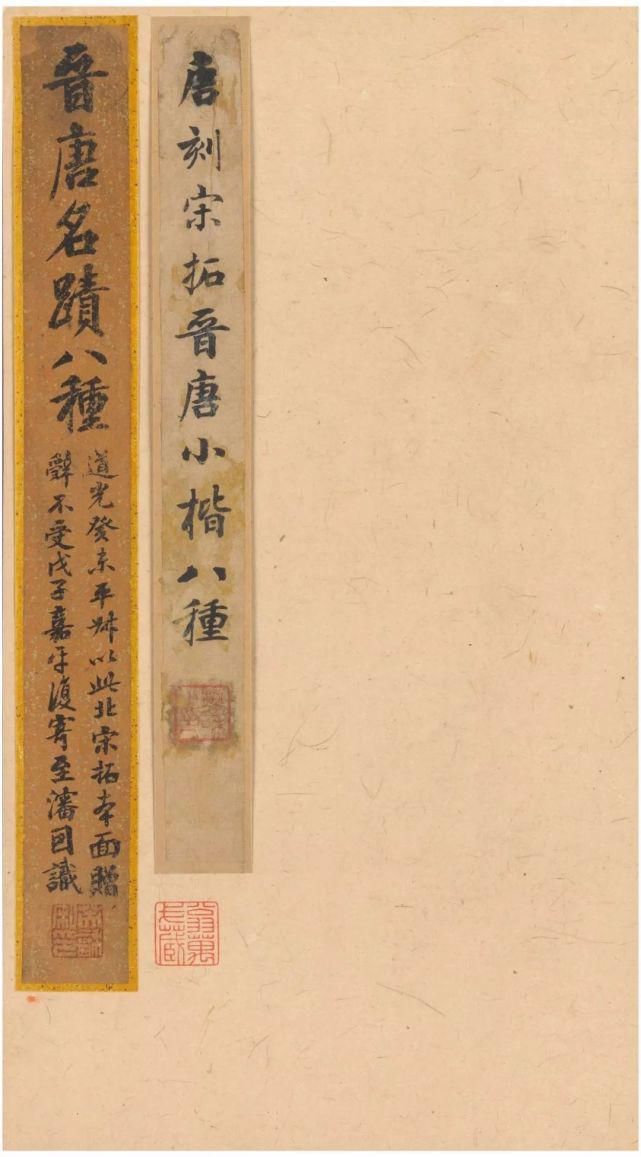 唐刻宋拓晉唐小楷八種
晉唐名蹟八種
道光癸未平叔以此北宋拓本面贈
辭不受戊子嘉平復寄至瀋因識
翁萬
戈藏